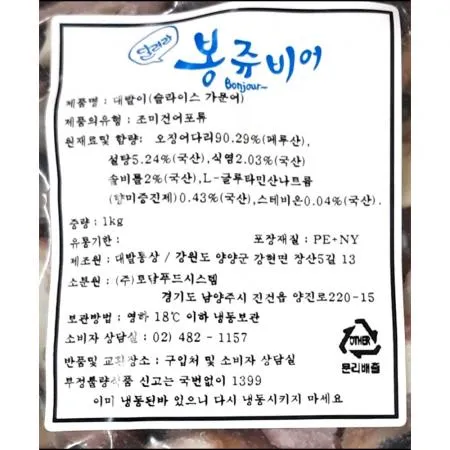 달려라
봉쥬비어
Bonjour~
제품명 : 대발이(슬라이스 가문어)
제품의유형 : 조미건어포류
원재료및 함량: 오징어다리90.29%(페루산),
설탕5.24%(국산),식염2.03%(국산)
솔비톨2%(국산),L-글루타민산나트륨
(향미증진제)0.43%(국산),스테비온0.04%(국산).
중량 : 1kg
유통기한 : 포장재질 : PE+NY
제조원 : 대발통상 / 강원도 양양군 강현면 장산5길 13
소분원 : (주)모담푸드시스템
경기도 남양주시 진건읍 양진로220-15
보관방법 : 영하 18℃ 이하 냉동보관
소비자 상담실 : 02) 482 - 1157
반품및 교환장소 : 구입처 및 소비자 상담실
부정불량식품 신고는 국번없이 1399
이미 냉동된바 있으니 다시 냉동시키지 마세요
OTHER
분리배출